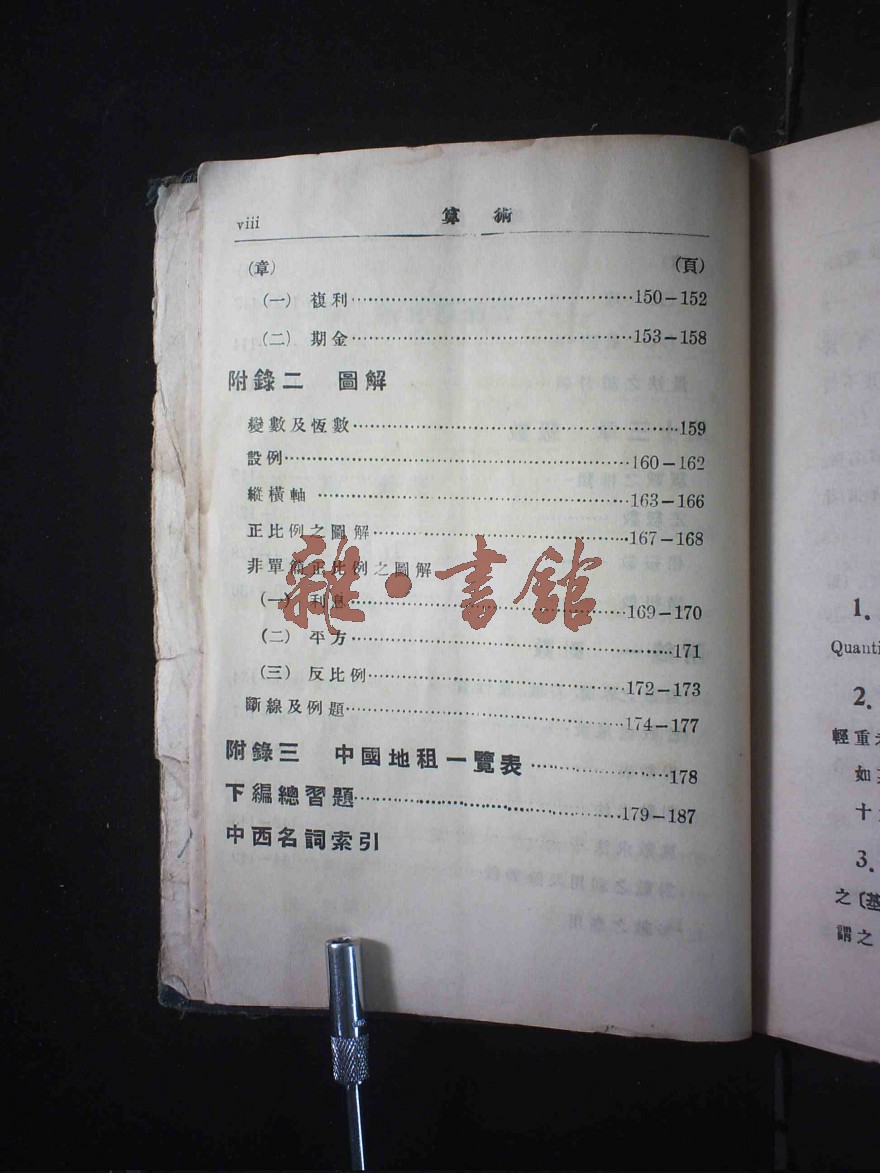 viii 算術
(章) (頁)
(一) 複利……150-152
(二) 期金……153-158
附錄二 圖解
變數及恆數……159
設例……160-162
縱橫軸……163-166
正比例之圖解……167-168
非單簡正比例之圖解
(一) 利息……169-170
(二) 平方……171
(三) 反比例……172-173
斷線及例題……174-177
附錄三 中國地租一覽表……178
下編總習題……179-187
中西名詞索引
雜·書館
1.
Quanti
2.
輕重
如
十
3.
之〔基
謂之